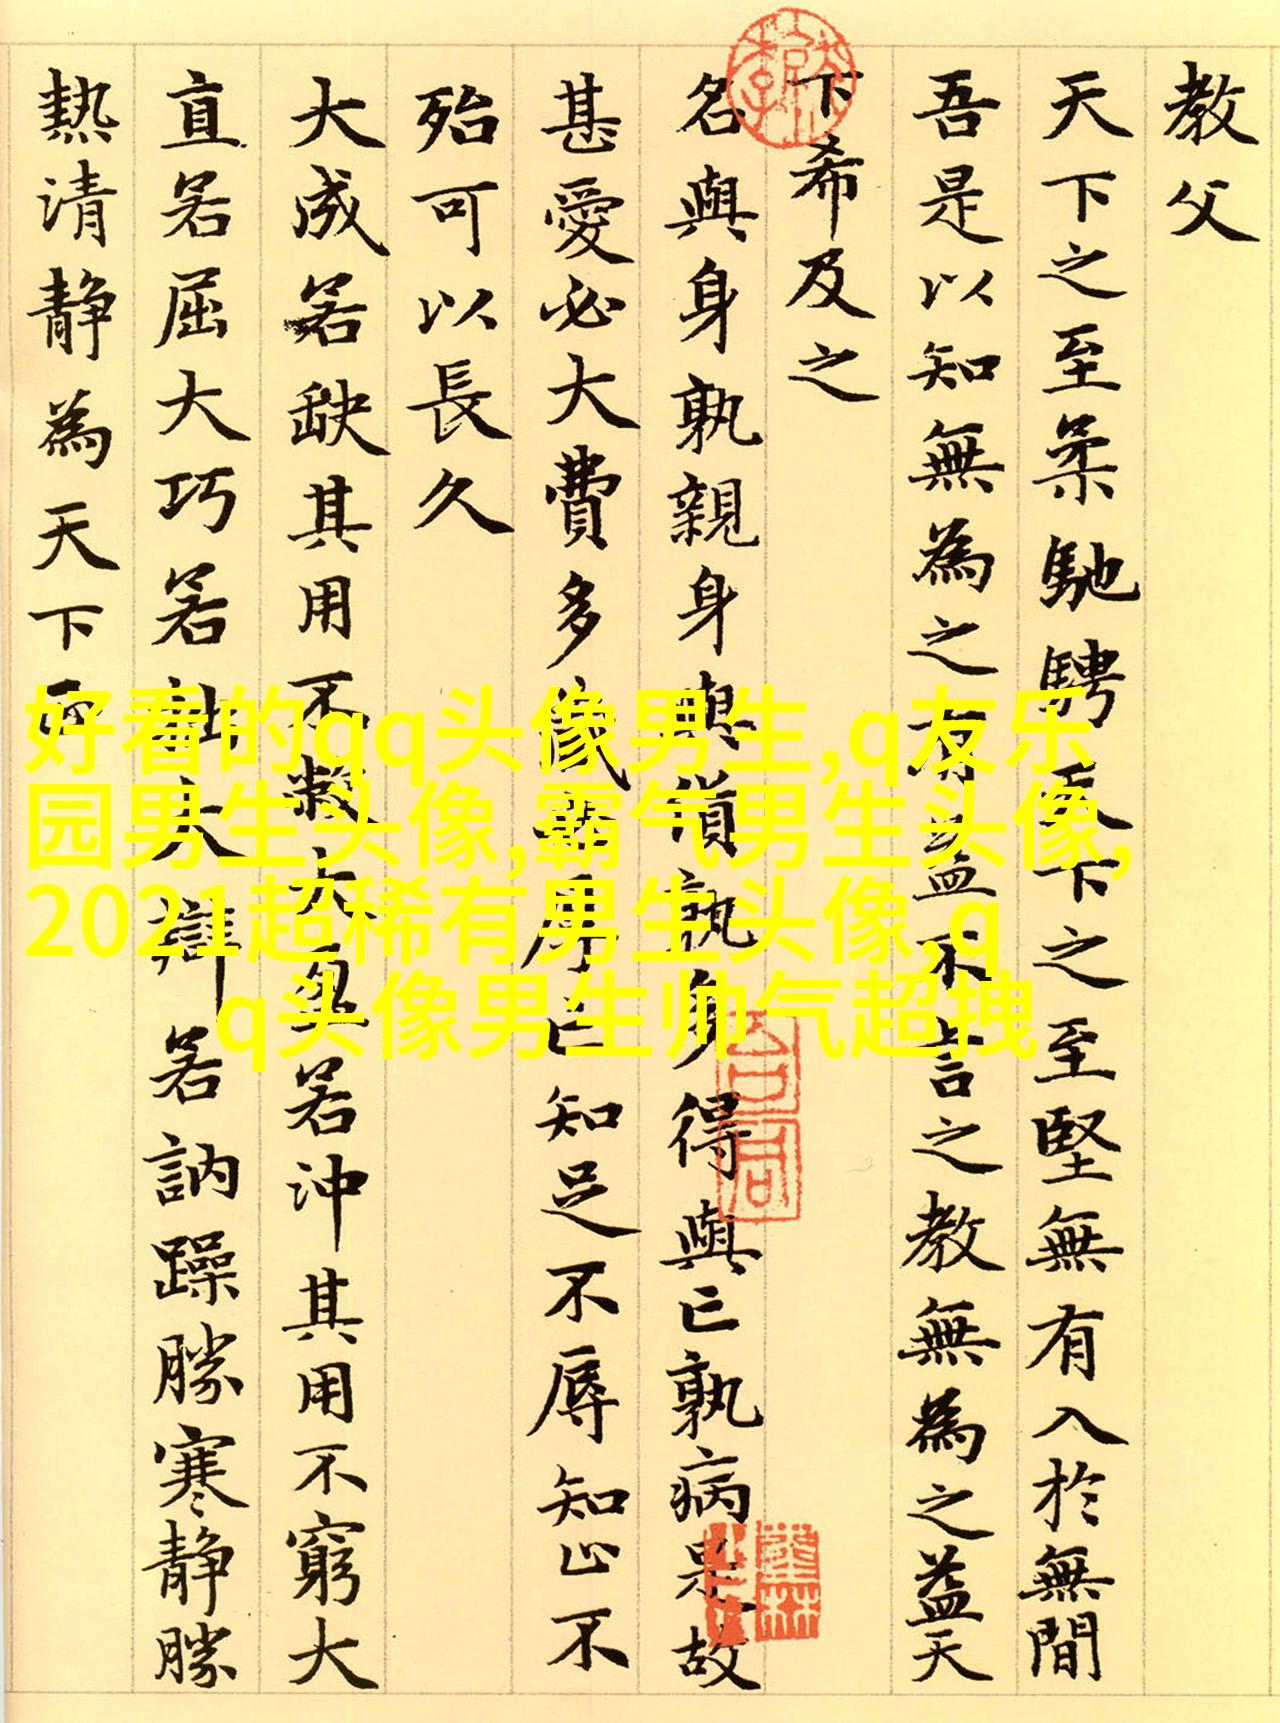 教父
天下之至柔馳騁天下之至堅無有入於無間
吾是以知無為之有益不言之教無為之益天
下希及之
名與身孰親身與貨孰多得與亡孰病是故
甚愛必大費多藏必厚亡知足不辱知止不
殆可以長久
大成若缺其用不敝大盈若沖其用不窮大
直若屈大巧若拙大辯若訥躁勝寒静勝
熱清静為天下正
好看的qq头像男生,q友乐
园男生头像,霸气男生头像,
2021超稀有男生头像,q
q头像男生帅气超拽